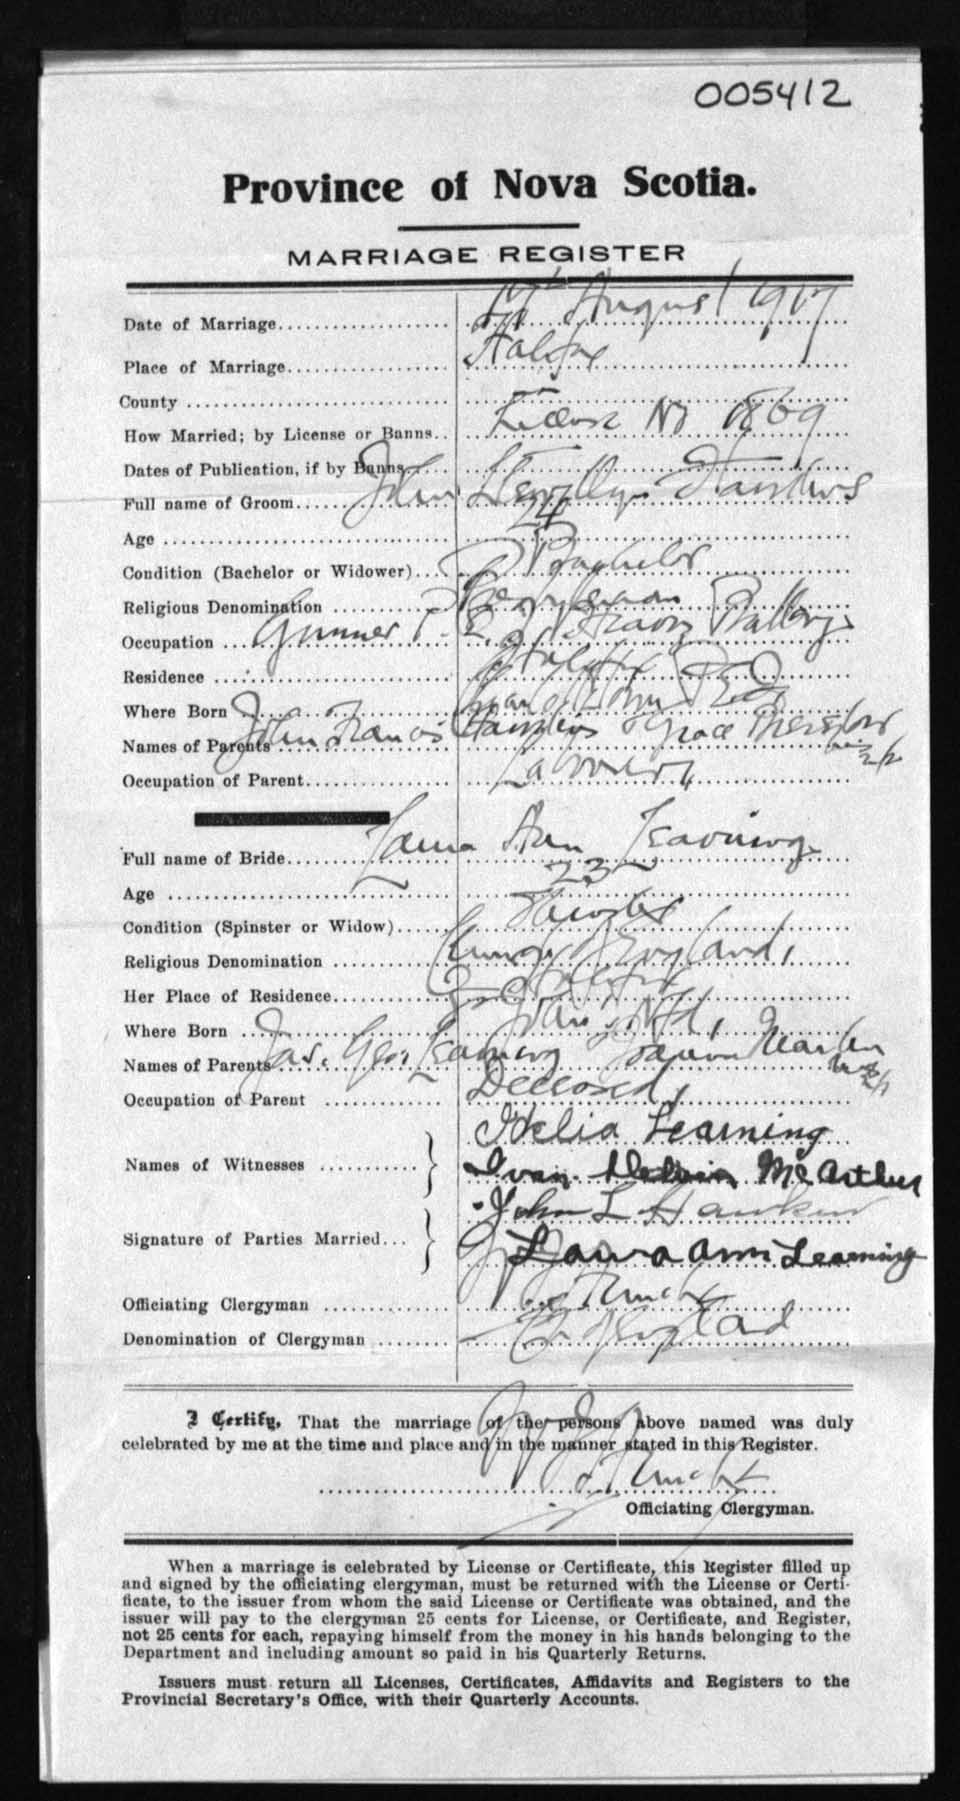 005412
Province of Nova Scotia.
MARRIAGE REGISTER
Date of Marriage 17th August 1917
Place of Marriage Halifax
County
How Married; by License or Banns License No 1869
Dates of Publication, if by Banns
Full name of Groom John Llewellyn
Age 24
Condition (Bachelor or Widower) Bachelor
Religious Denomination Presbyterian
Occupation Gunner Heavy Battery
Residence Halifax
Where Born
Names of Parents John Francis Grace
Occupation of Parent
Full name of Bride Laura Ann Leaning
Age 23
Condition (Spinster or Widow) Spinster
Religious Denomination Church of England
Her Place of Residence Halifax
Where Born Nfld,
Names of Parents Jas. Geo.
Occupation of Parent Deceased
Names of Witnesses Learning
Ivan McArthur
Signature of Parties Married John L
Laura Ann Learning
Officiating Clergyman
Denomination of Clergyman Ch of England
I Certify, That the marriage of the persons above named was duly
celebrated by me at the time and place and in the manner stated in this Register.
Officiating Clergyman.
When a marriage is celebrated by License or Certificate, this Register filled up
and signed by the officiating clergyman, must be returned with the License or Certi-
ficate, to the issuer from whom the said License or Certificate was obtained, and the
issuer will pay to the clergyman 25 cents for License, or Certificate, and Register,
not 25 cents for each, repaying himself from the money in his hands belonging to the
Department and including amount so paid in his Quarterly Returns.
Issuers must return all Licenses, Certificates, Affidavits and Registers to the
Provincial Secretary's Office, with their Quarterly Accounts.